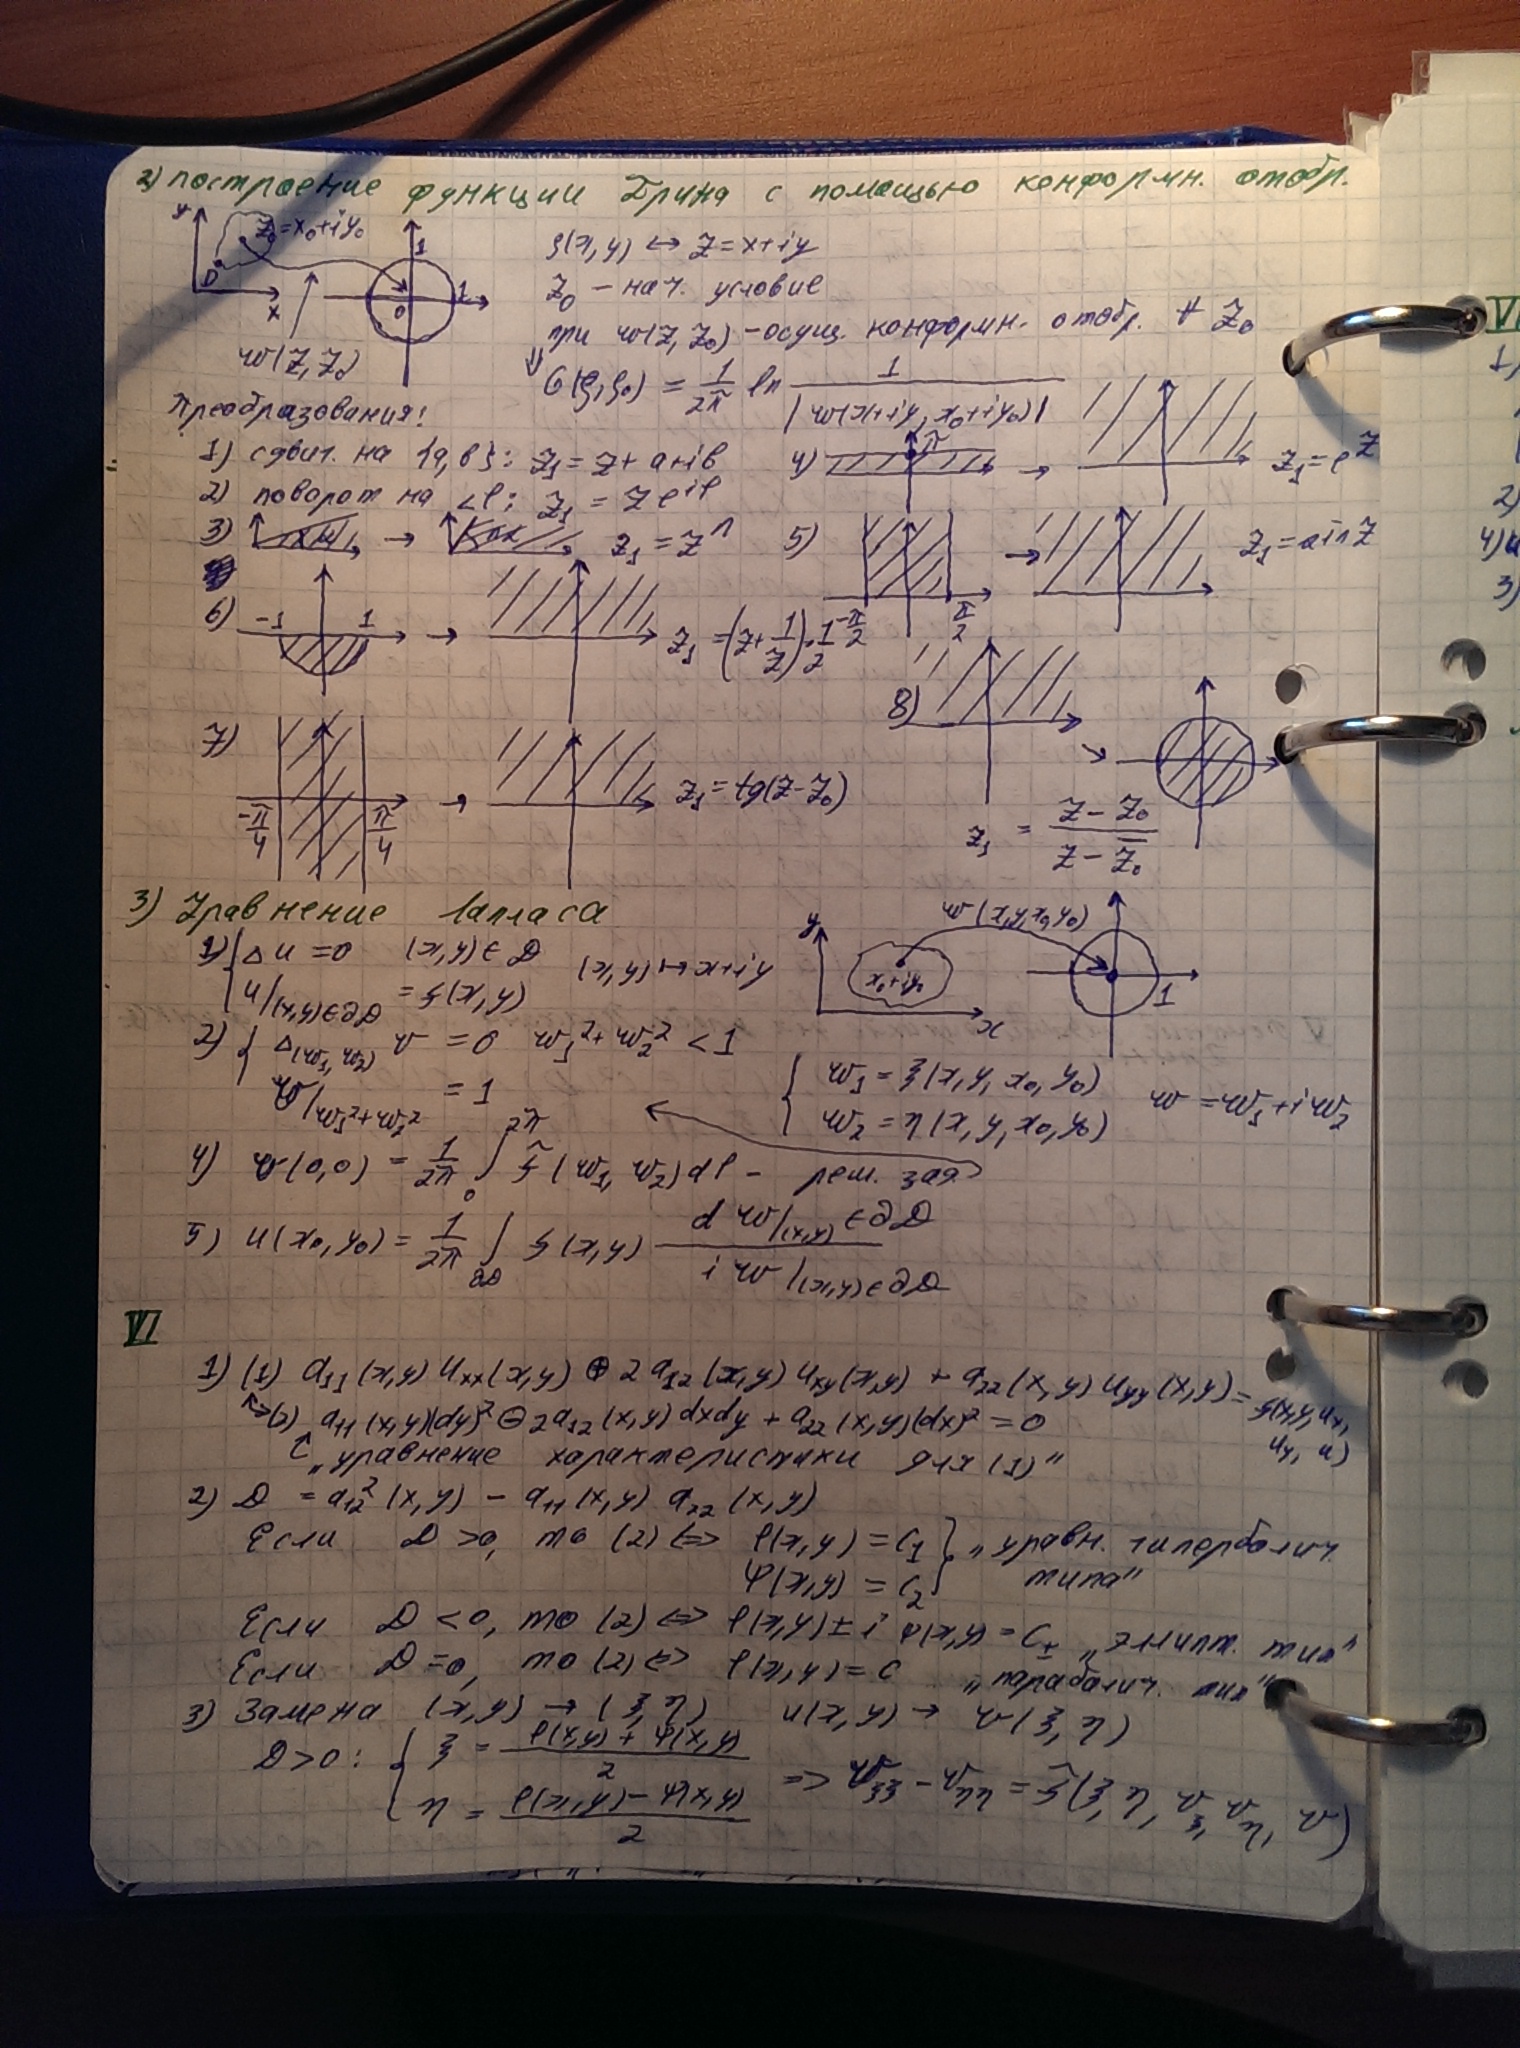 2) построение функции Грина с помощью конформн. отобр.
y
z₀=x₀+iy₀
D
x
1
1
0
w(z,z₀)
ς(x,y) ↔ z=x+iy
z₀ – нач. условие
при w(z,z₀) – осущ. конформн. отобр. ∀ z₀
⇓ G(ς,ς₀) = 1/2π ln 1/|w(x+iy, x₀+iy₀)|
Преобразования:
1) сдвиг. на {a,b}: z₁=z+a+ib
2) поворот на ∠φ: z₁ = z e^{iφ}
3) → z₁ = zⁿ
4) π → z₁=e^z
5) -π/2 π/2 → z₁=sin z
6) -1 1 → z₁ = (z+1/z)·1/2
7) -π/4 π/4 → z₁=tg(z-z₀)
8) → z₁ = (z-z₀)/(z-z̄₀)
3) Уравнение Лапласа
1) { Δu=0 (x,y)∈D
u/(x,y)∈∂D = f(x,y)
(x,y)↔x+iy
y
x₀+iy₀
x
w(x,y,x₀,y₀)
1
2) { Δ(w₁,w₂) v = 0 w₁²+w₂² < 1
v/w₁²+w₂² = 1
{ w₁ = ξ(x,y,x₀,y₀)
w₂ = η(x,y,x₀,y₀)
w = w₁+iw₂
4) v(0,0) = 1/2π ∫₀^{2π} f̃(w₁,w₂)dφ – реш. зад.
5) u(x₀,y₀) = 1/2π ∫_{∂D} f(x,y) d w/(x,y)∈∂D / i w/(x,y)∈∂D
VI
1) (1) a₁₁(x,y)uₓₓ(x,y) ⊕ 2a₁₂(x,y)u_{xy}(x,y) + a₂₂(x,y)u_{yy}(x,y) = f(x,y,uₓ,
u_y, u)
(2) a₁₁(x,y)(dy)² ⊖ 2a₁₂(x,y)dxdy + a₂₂(x,y)(dx)² = 0
„уравнение характеристики для (1)"
2) D = a₁₂²(x,y) – a₁₁(x,y) a₂₂(x,y)
Если D>0, то (2) ⇔ φ(x,y) = C₁ } „уравн. гиперболич.
ψ(x,y) = C₂ типа"
Если D<0, то (2) ⇔ φ(x,y) ± i ψ(x,y) = C± „эллипт. тип"
Если D=0, то (2) ⇔ φ(x,y)=C „параболич. тип"
3) Замена (x,y) → (ξ,η) u(x,y) → v(ξ,η)
D>0: { ξ = (φ(x,y)+ψ(x,y))/2
η = (φ(x,y)–ψ(x,y))/2
=> v_{ξξ} – v_{ηη} = f̃(ξ, η, v_ξ, v_η, v)
VI
1)
2)
4)
3)